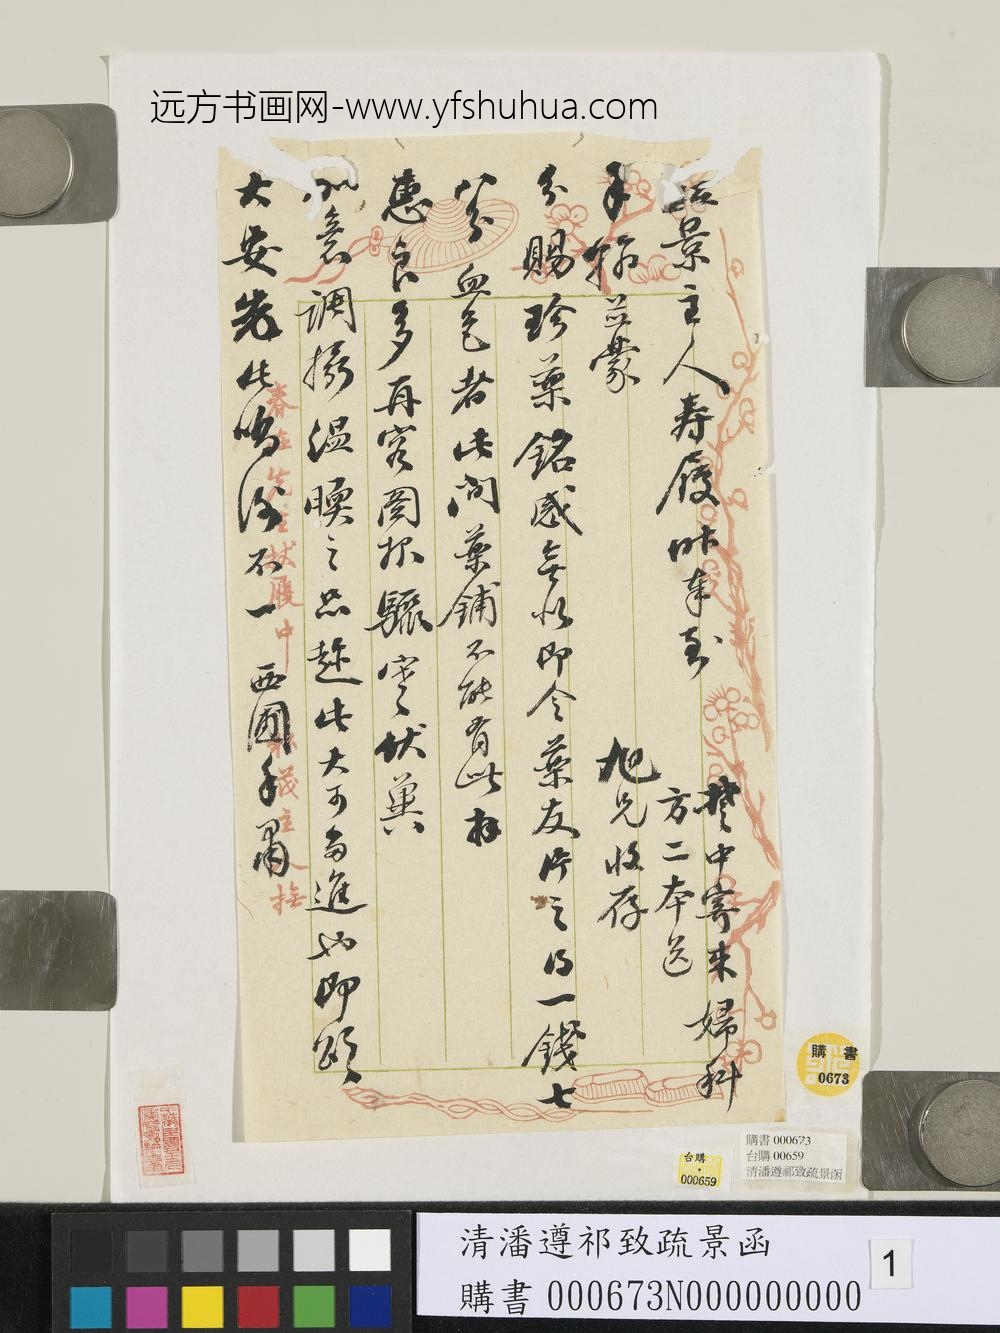 远方书画网-www.yfshuhua.com
景主人寿履昨奉到
手翰并蒙
分賜珍藥銘感無似即令藥友片之得一錢七
分血色者此間藥鋪不能有此拜
惠良多再容圖報驪寒伏冀
加意調攝温暖之品趁此大可多進也即頌
大安先此鳴謝不一 西圃手肅
楚中寄来婦科
方二本送
旭兄收存
春在先生杖履 中
茂主人 撫
購書
0673
台購
000659
購書 000673
台購 00659
清潘遵祁致疏景函
清潘遵祁致疏景函
購書 000673N000000000
1